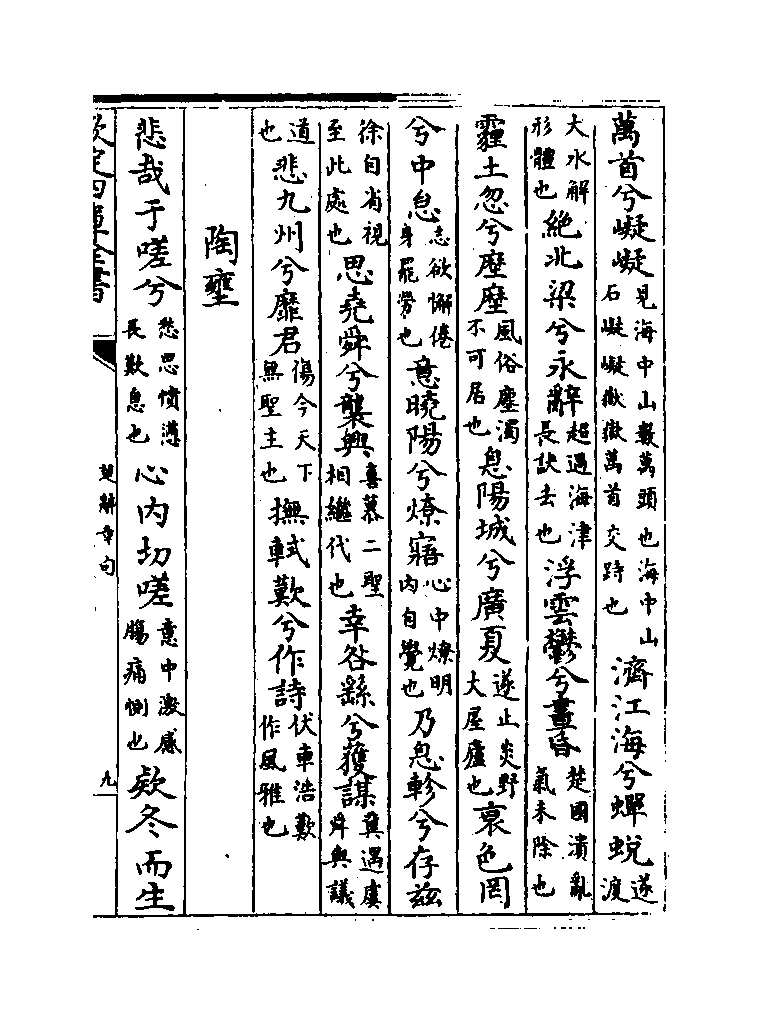 萬首兮嶷嶷見海中山數萬頭也海中山石嶷嶷嶽嶽萬首交跱也濟江海兮蟬蛻遂渡
大水解形體也絶北梁兮永辭超過海津長訣去也浮雲鬱兮晝昏楚國潰亂氣未除也
霾土忽兮塺塺風俗塵濁不可居也息陽城兮廣夏遂止炎野大屋廬也衰色罔
兮中怠志欲懈倦身罷勞也意曉陽兮燎寤心中燎明内自覺也乃息軫兮存兹
徐自省視至此處也思堯舜兮襲興喜慕二聖相繼代也幸咎繇兮獲謀冀遇虞舜與議
道也悲九州兮靡君傷今天下無聖主也撫軾歎兮作詩伏車浩歎作風雅也
陶壅
悲哉于嗟兮愁思憤懣長歎息也心内切嗟意中激感腸痛惻也欵冬而生
欽定四庫全書
楚辭章句
九